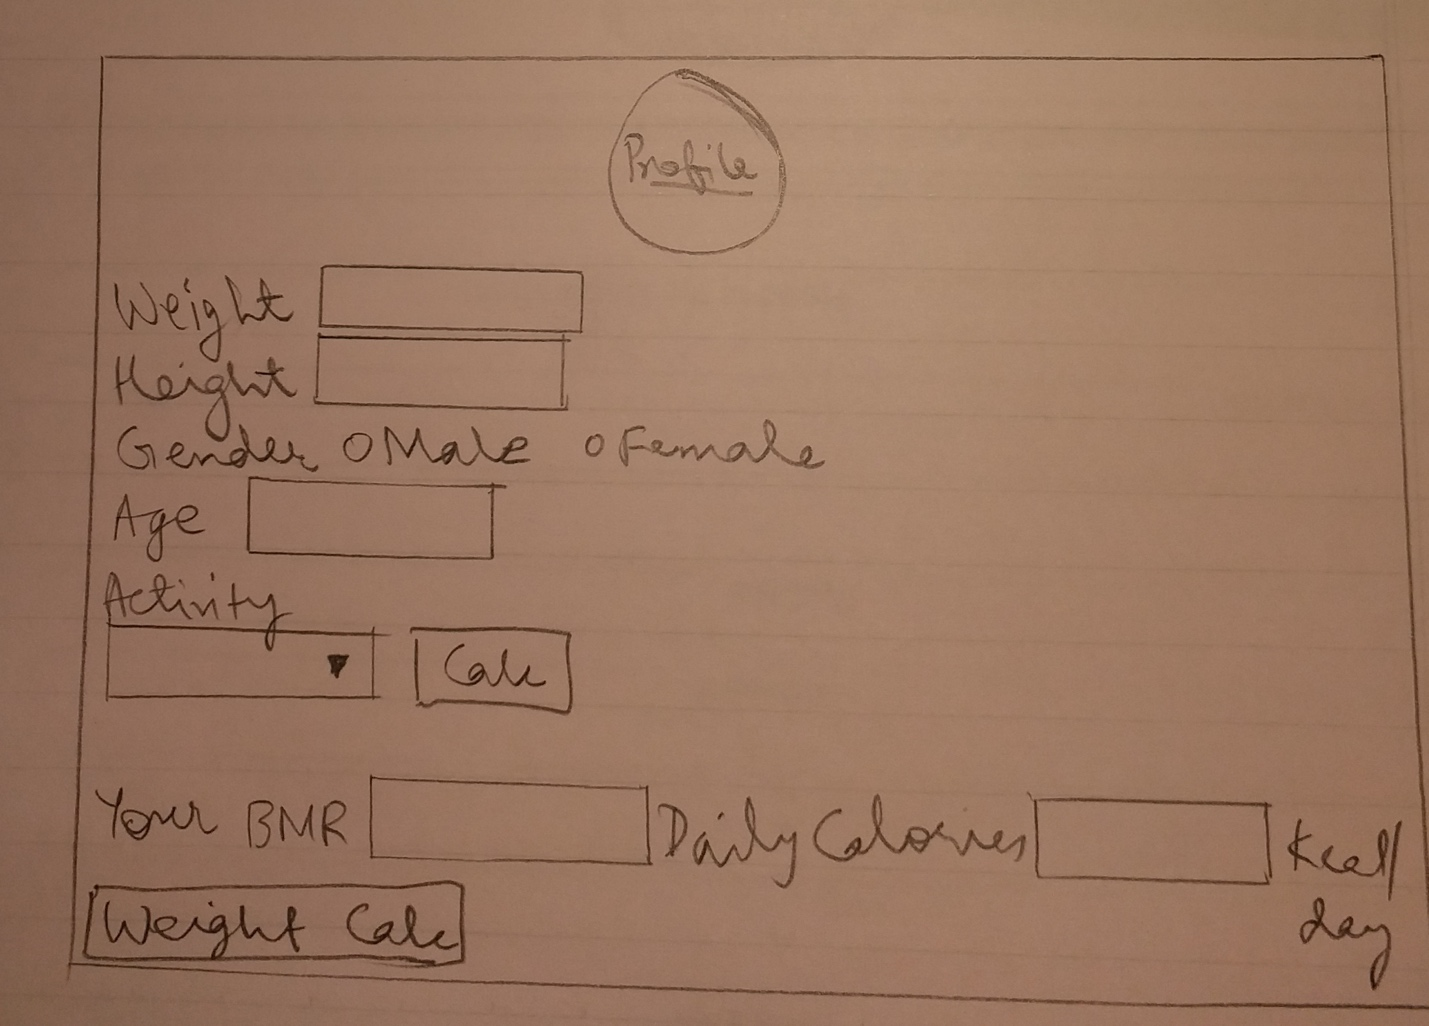 Profile
Weight
Height
Gender Male Female
Age
Activity
Calc
Your BMR Daily Calories Kcal/
day
Weight Calc